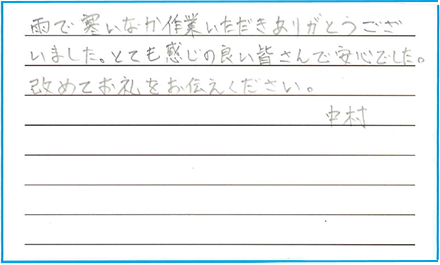 雨で寒いなか作業いただきありがとうござ
いました。とても感じの良い皆さんで安心でした。
改めてお礼をお伝えください。
中村